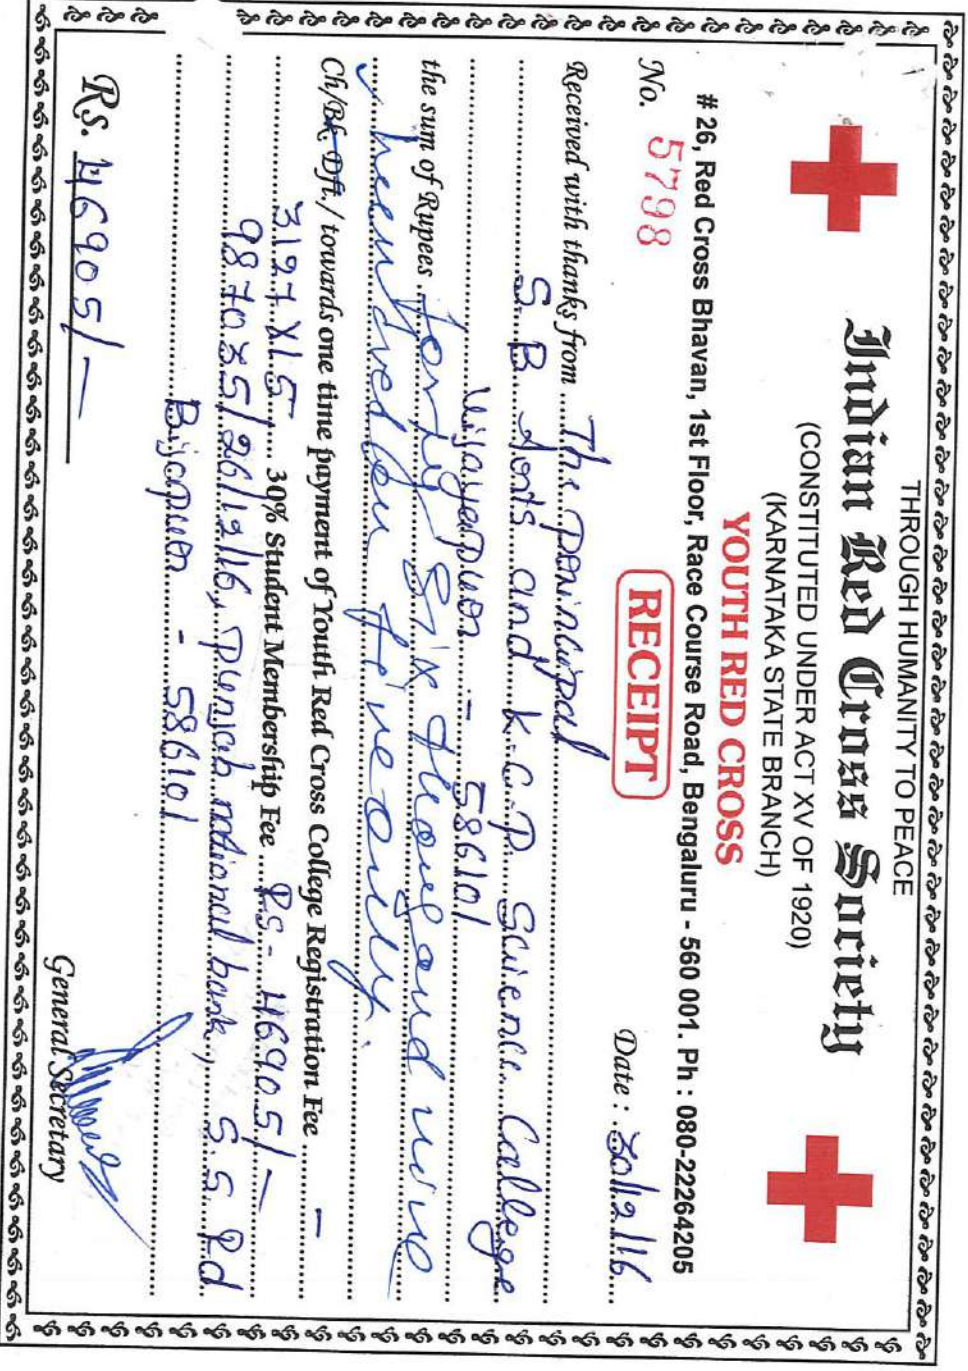 THROUGH HUMANITY TO PEACE
Indian Red Cross Society
(CONSTITUTED UNDER ACT XV OF 1920)
(KARNATAKA STATE BRANCH)
YOUTH RED CROSS
# 26, Red Cross Bhavan, 1st Floor, Race Course Road, Bengaluru - 560 001. Ph : 080-22264205
No. 5798 RECEIPT Date : 30/12/16
Received with thanks from The Principal
S. B Arts and K.C.P Science College
Vijayapur - 586101
the sum of Rupees forty Six thousand nine
hundred five only.
Ch/Bk. Dft./ towards one time payment of Youth Red Cross College Registration Fee —
3127 X 15 30% Student Membership Fee Rs- 46905/-
987035/26/12/16, Punjab national bank, S.S Rd
Bijapur - 586101
Rs. 46905/-
General Secretary